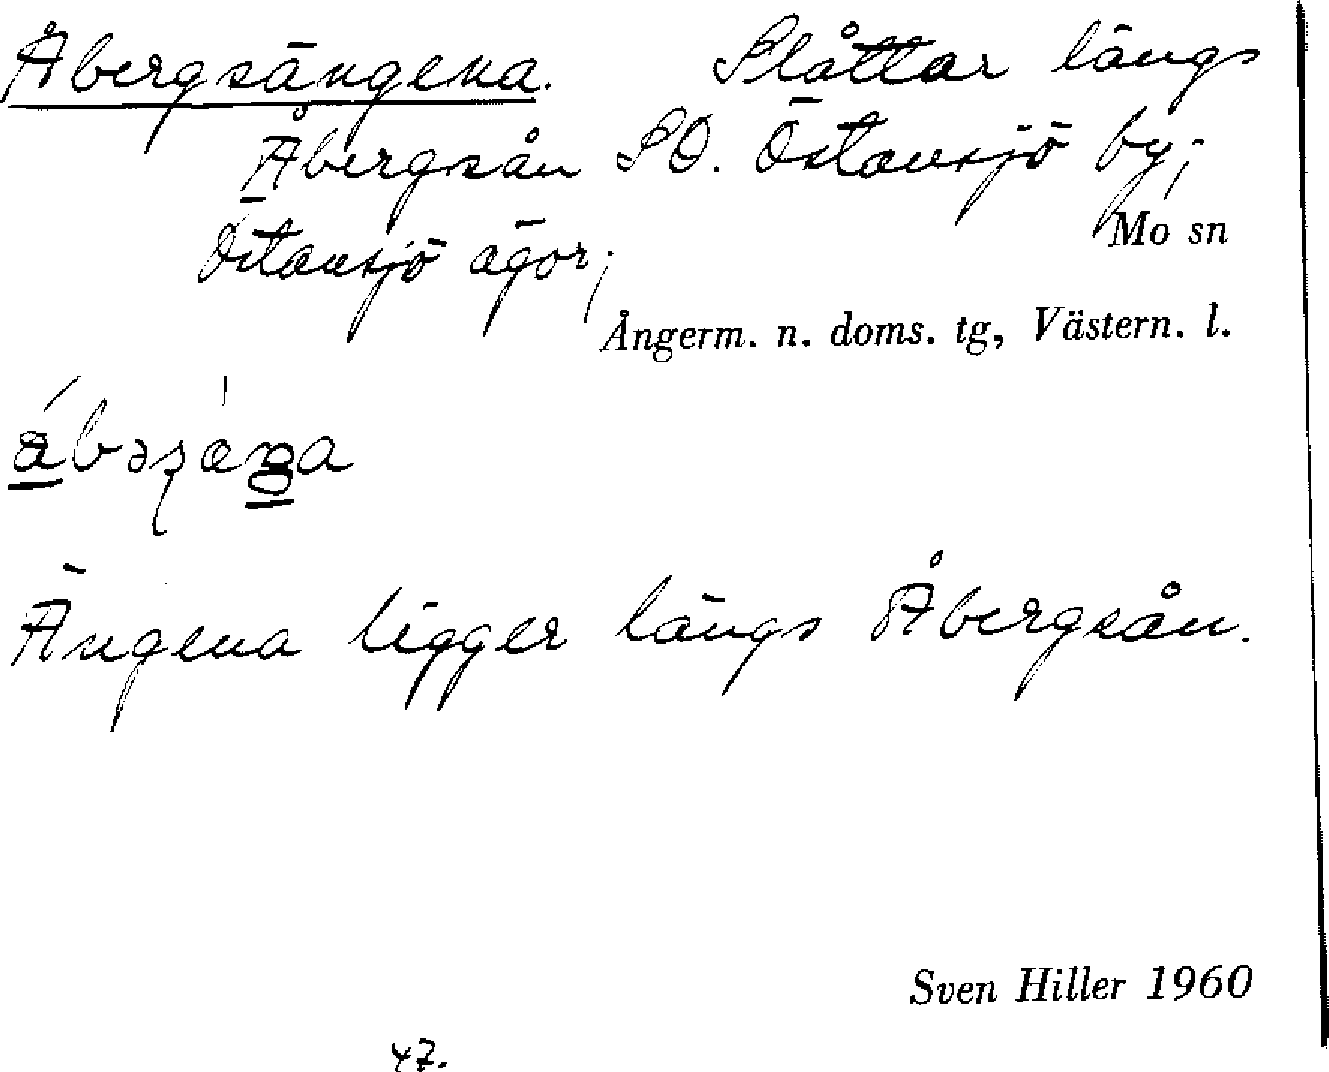 Åbergsängena. Slåttar längs
Åbergsån SO. Östansjö by;
Mo sn
Östansjö ägor;
Ångerm. n. doms. tg, Västern. l.
Ängena ligger längs Åbergsån.
Sven Hiller 1960
47.